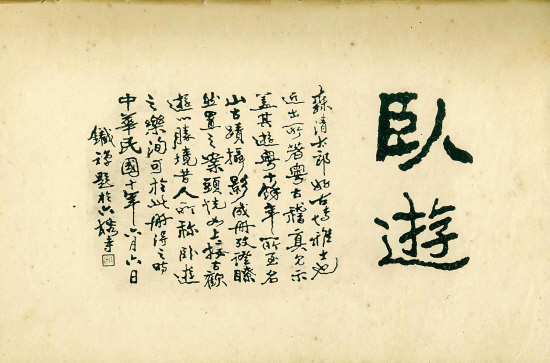 臥遊
森清太郎好古博雅士也
近出所著粤古稽真示
蓋其遊粤十餘年所至名
山古蹟攝影成册攷證瞭
然置之案頭恍如上接古歡
遊勝境昔人所稱臥遊
之樂洵可於此册得之時
中華民國十年六月六日
鐵禪題於六榕寺